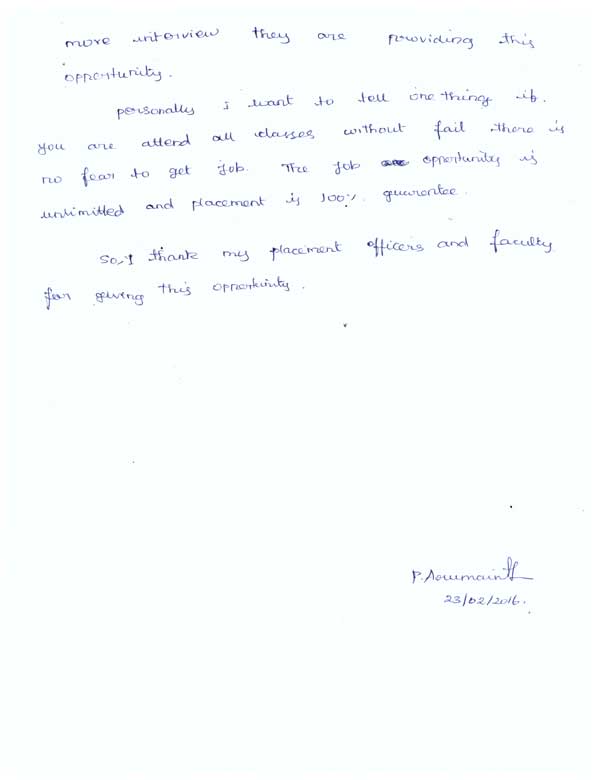 more interview they are providing this
opportunity.
personally i want to tell one thing if.
you are attend all classes without fail there is
no fear to get job. The job opportunity is
unlimitted and placement is 100% guarentee.
So, I thank my placement officers and faculty
for geiving this opportunity.
P.
23/02/2016.